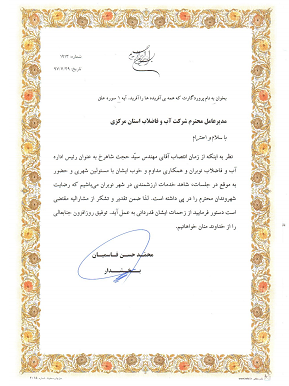 شماره: ۱۷۱۳
تاریخ: ۹۷/۰۷/۲۹
بخوان به نام پروردگارت که همه ی آفریده ها را آفرید. آیه ۱ سوره علق
مدیرعامل محترم شرکت آب و فاضلاب استان مرکزی
با سلام و احترام
نظر به اینکه از زمان انتصاب آقای مهندس سیّد حجت شاهرخ به عنوان رئیس اداره
آب و فاضلاب نوبران و همکاری مداوم و خوب ایشان با مسئولین شهری و حضور
به موقع در جلسات، شاهد خدمات ارزشمندی در شهر نوبران می‌باشیم که رضایت
شهروندان محترم را در پی داشته است. لذا ضمن تقدیر و تشکر از مشارالیه مقتضی
است دستور فرمایید از زحمات ایشان قدردانی به عمل آید. توفیق روزافزون جنابعالی
را از خداوند منان خواهانیم.
محمّد حسین قاسمیان
بخشدار